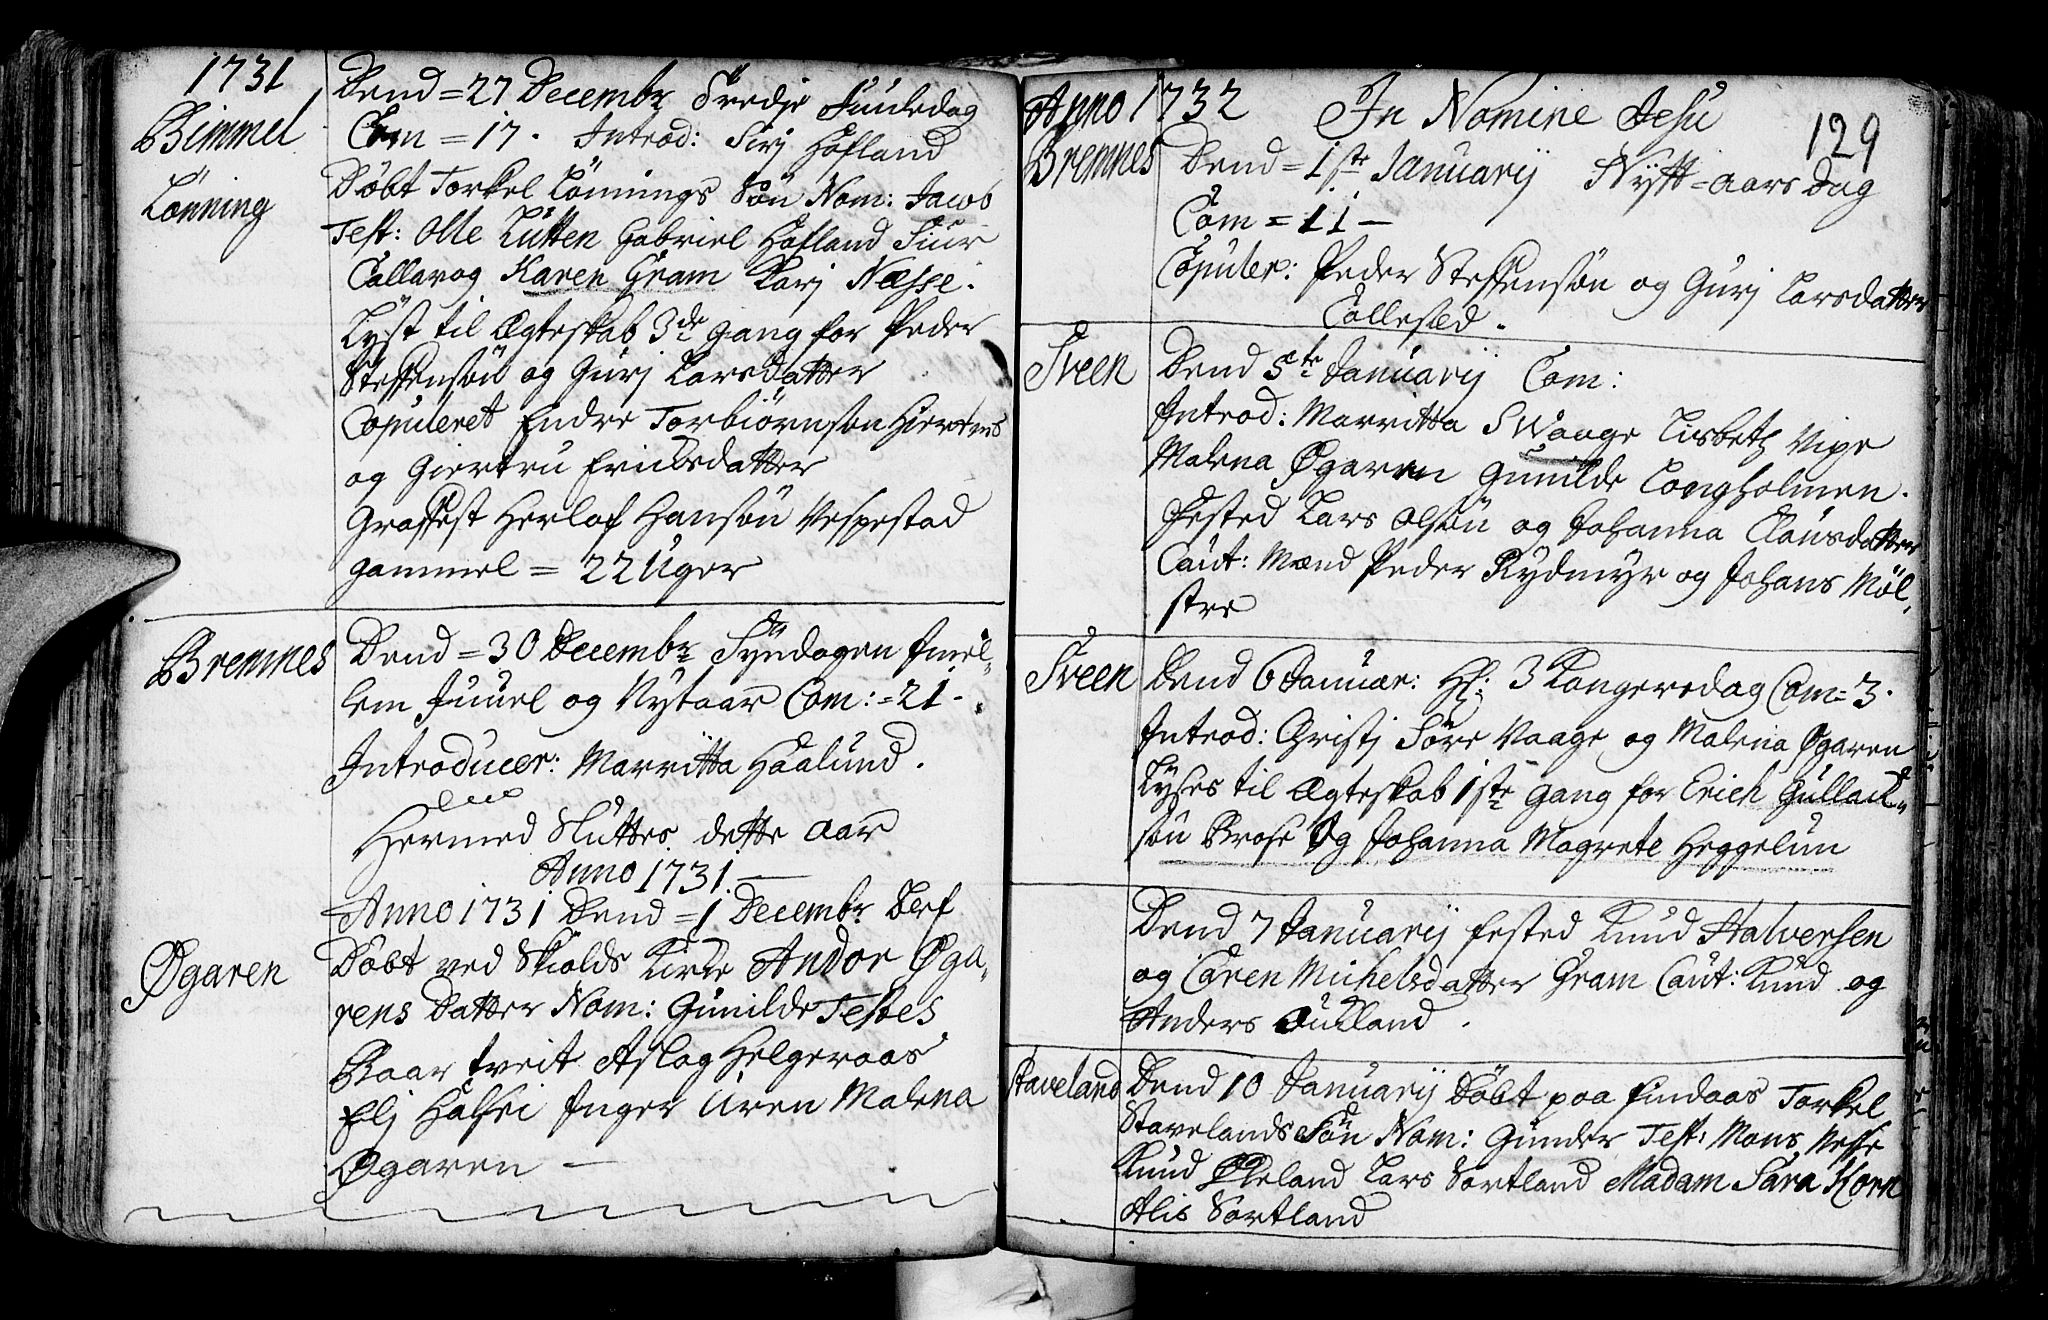 1731
Bemmel
Lönning
Dend = 27 Decembr Tredje Juuledag
Com = 17. Introd: Sirj Hofland
Döbt Torkel Lönnings Sön Nom: Jacob
Test: Olle Lütten Gabriel Hofland Siur
Callavog Karen Gram Karj Næsse.
Lyst til Ægteskab 3de gang for Peder
Steffensön og Gurj Larsdatter
Copuleret Endre Torbiörnsön
og Giertru Erichsdatter
Graffest Herlof Hansön Vespestad
gammel = 22 Uger
Bremnes
Dend = 30 Decembr Syndagen Imel-
lem Juuel og Nytaar Com: = 21 -
Introducer: Marritta Haalund.
Hermed Sluttes dette Aar
Anno 1731. —
Øgaren
Anno 1731 Dend = 1 Decembr Blef
Döbt ved Skiolds Kirke Andor Øga-
rens Datter Nom: Gunilde Testes
tveit Aslag Helgeraas
Elj Halsei Inger Uren Malena
Øgaren —
Anno 1732 In Nomine Jesu
129
Bremnes
Dend = 1ste Januarij Nytt = aars Dag
Com = 11 —
Copuler: Peder Steffensön og Gurj Larsdatter
Sveen
Dend 5te Januarij Com:
Introd: Marritta SWaage Lisbeth Vige
Malena Øgaren Gunilde Longholmen.
Fested Lars Olsön og Johanna Clausdatter
Caut: Mænd Peder Rydmyr og Johans Möl-
stre
Sveen
Dend 6 Januar: Hl: 3 Kongersdag Com = 3.
Introd: Christj Söre Vaage og Malena Øgaren
Lyses til Ægteskab 1ste gang for Erich Gullack-
sön Brose Og Johanna Magrete Heggelun
Dend 7 Januarij fested Knud Halversen
og Caren Michelsdatter Gram Caut: Knud og
Anders Öukland.
Staveland
Dend 10 Januarij Döbt paa Findaas Torkel
Stavelands Sön Nom: Gunder Test: Mons Nesse
Knud Økeland Lars Sortland Madam Sara Horn
Alis Sortland